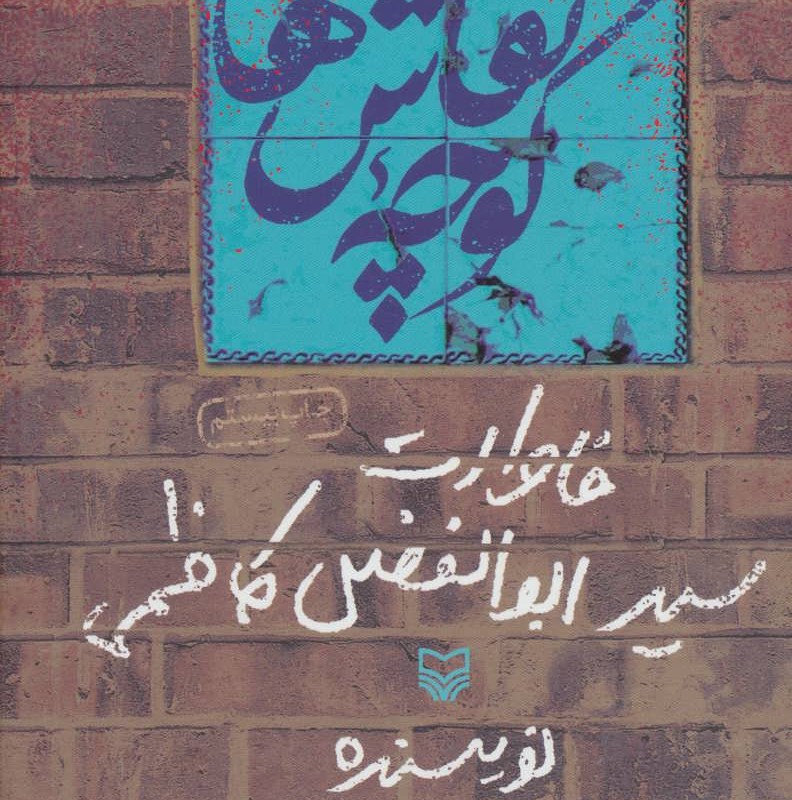 کوچهٔ
نقاش‌ها
چاپ بیستم
خاطرات
سید ابوالفضل کاظمی
نویسنده